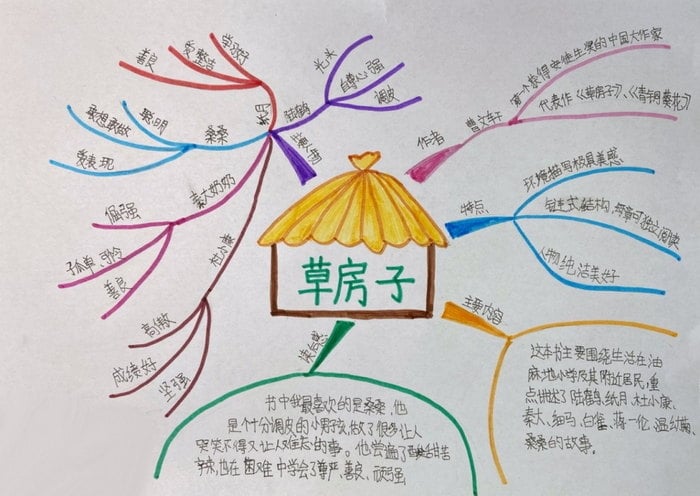 草房子
作者
曹文轩
第一个获得安徒生奖的中国大作家
代表作《草房子》、《青铜葵花》
特点
环境描写极具美感
链走式结构,每章可独立阅读
人物纯洁美好
主要内容
这本书主要围绕生活在油
麻地小学及其附近居民,重
点讲述了陆鹤,纸月,杜小康,
秦大、细马、白雀、蒋一伦、温幼菊、
桑桑的故事。
读后感
书中我最喜欢的是桑桑,他
是个十分调皮的小男孩,做了很多让人
哭笑不得又让人难忘的事。他尝遍了酸甜甘苦
辛辣,也在困难中学会了尊严、善良、顽强
陆鹤
光头
自尊心强
调皮
纸月
学习好
爱整洁
善良
桑桑
聪明
敢想敢做
爱表现
秦大奶奶
倔强
孤单、可怜
善良
杜小康
高傲
成绩好
坚强